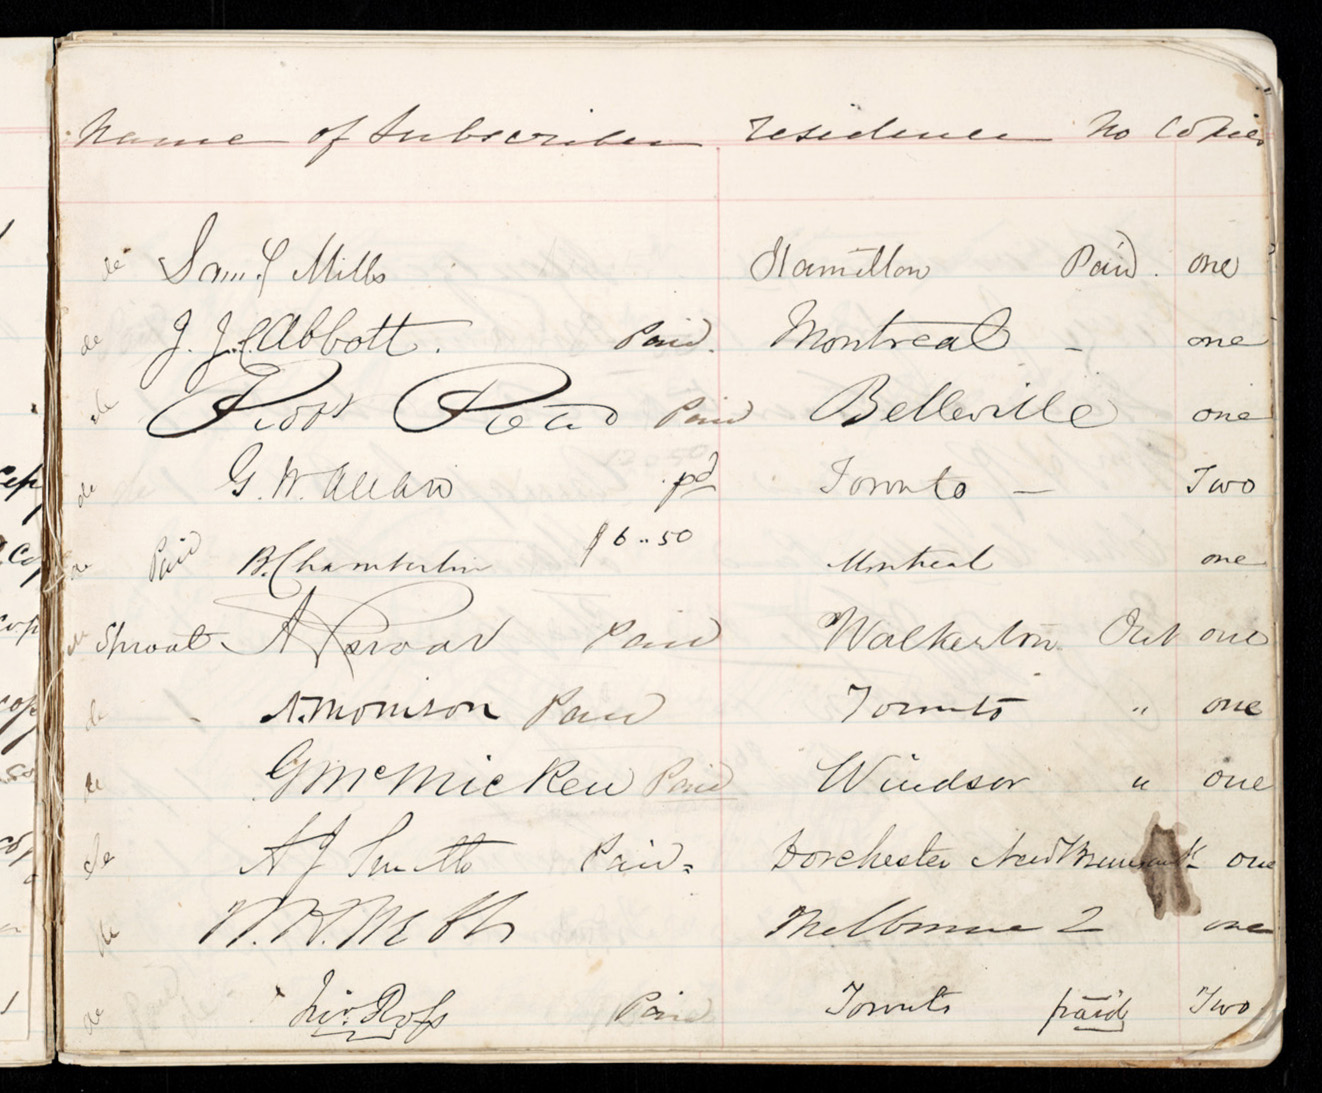 Name of Subscriber residence No Copies
de Saml Mills Hamilton Paid. one
de J. J. C. Abbott. Paid. Montreal - one
de Robt Read Paid Belleville one
de G. W. Allan pd Toronto - Two
$6..50
de Paid B. Chamberlin Montreal one
de Sproat A Sproat Paid Walkerton Ont one
de A. Morrison Paid Toronto " one
de G McMicken Paid Windsor " one
de A J Smith Paid- Dorchester New Brunswk one
de W. H. Webb Melbourne 2 one
de Jno. Ross Paid Toronto paid Two